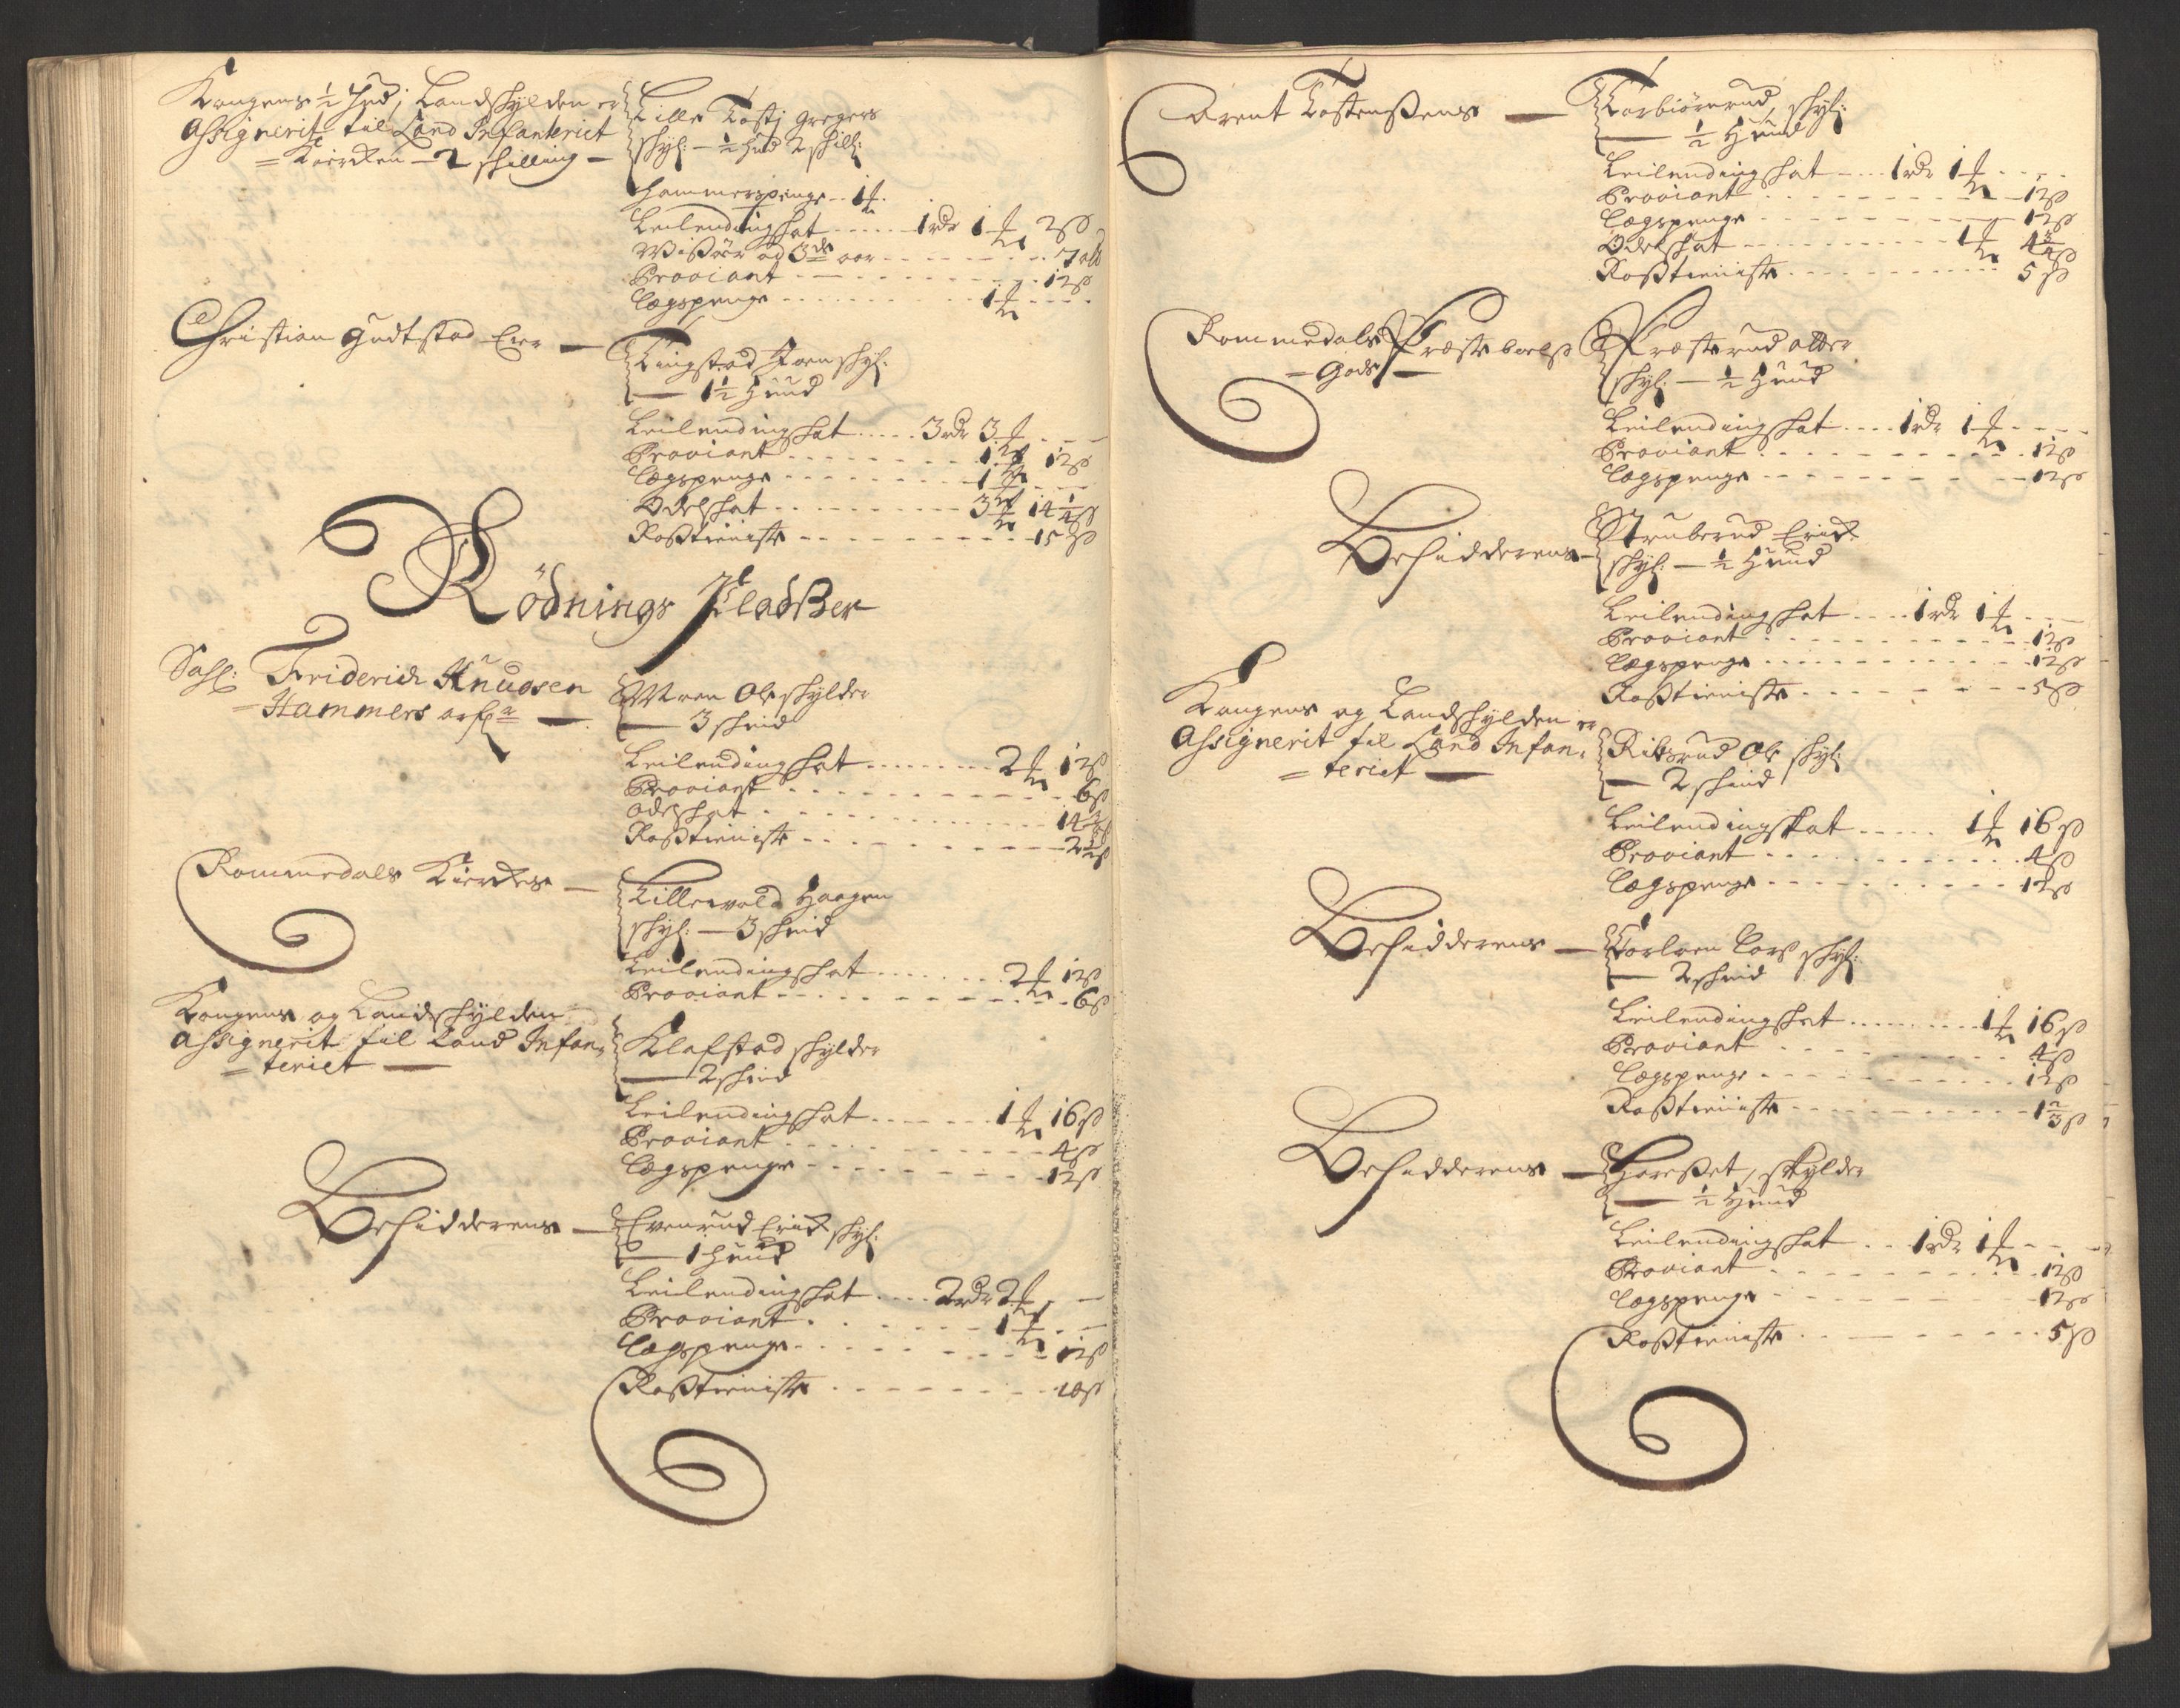 Kongens ½ Hud, Landschÿlden er
Assignerit til Land Infanteriet
= Kierchen - 2 schilling -
Lille Tostj Gregers
schÿl: - ½ hud 2 schill:
Hammerspenge .. 1
Leilendingschat ..... 1 rdr 1 2 ß
Wissøer ad 3de aar
Proviant ..... 12 ß
Legspenge ..... 1
Christian Gudtstad Eier —
Tingstad Joen schÿl:
— 1½ Huud
Leilendingschat .... 3 rdr 3
Proviant ..... 1 12 ß
Legspenge ..... 1
Odelschat ..... 3 14¼ ß
Rosztieniste ..... 15 ß
Rödnings Pladszer
Sahl: Friderich Knudsen
= Hammers arf:
Moen Ole schÿlder
— 3 schind
Leilendingschat ..... 2 12 ß
Proviant ..... 6 ß
Odelschat
Rosztieniste ..... 2½ ß
Rommedals Kierches —
Lillewold Haagen
schÿl: — 3 schind
Leilendingschat ..... 2 12 ß
Proviant ..... 6 ß
Kongens og Landschÿlden
Assignerit til Land Infan-
= teriet —
Klafstad schÿlder
— 2 schind
Leilendingschat ..... 1 16 ß
Proviant ..... 4 ß
Legspenge ..... 12 ß
Besidderens —
Evenrud Erich schÿl:
— 1 huud
Leilendingschat .... 2 rdr 2
Proviant ..... 1
Legspenge ..... 12 ß
Rosztieniste ..... 10 ß
Arent Tostensens —
Torbiörnrud, schÿl:
— ½ Huud
Leilendingschat .... 1 rdr 1
Proviant ..... 12 ß
Legspenge ..... 12 ß
Odelschat ..... 1 4¾ ß
Rosztieniste ..... 5 ß
Rommedals Præstebols
= Gods —
Præsterud
schÿl: — ½ Huud
Leilendingschat .... 1 rdr 1
Proviant ..... 12 ß
Legspenge ..... 12 ß
Besidderens —
Struberud Erich
schÿl: — ½ Huud
Leilendingschat .... 1 rdr 1
Proviant ..... 12 ß
Legspenge ..... 12 ß
Rosztieniste ..... 5 ß
Kongens og Landschÿlden er
Assignerit til Land Infan-
= teriet —
Ribsrud Ole schÿl:
— 2 schind
Leilendingskat ..... 1 16 ß
Proviant ..... 4 ß
Legspenge ..... 12 ß
Besidderens —
Torloen Lars schÿl:
— 2 schind
Leilendingschat ..... 1 16 ß
Proviant ..... 4 ß
Legspenge ..... 12 ß
Rosztieniste ..... 1⅔ ß
Besidderens —
Horeszet, skÿlder
— ½ Huud
Leilendingschat .. 1 rdr 1
Proviant ..... 12 ß
Legspenge ..... 12 ß
Rosztieniste ..... 5 ß